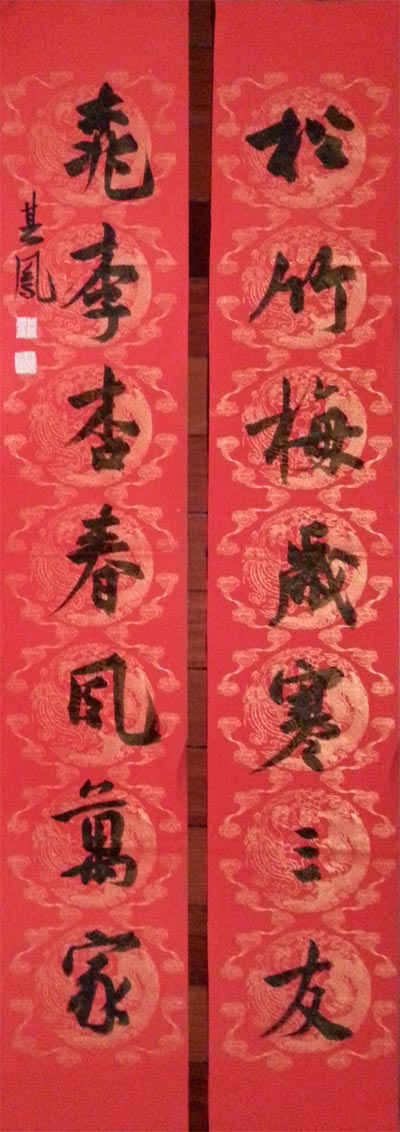 松竹梅歲寒三友
桃李杏春風萬家
其鳳